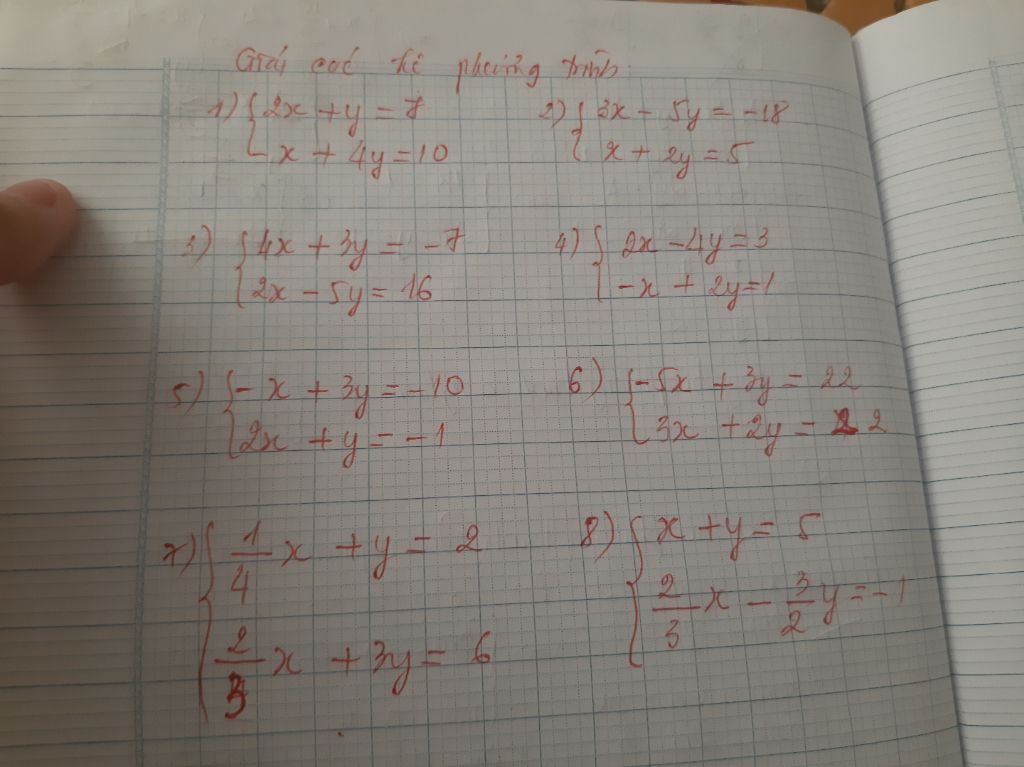 Giải các hệ phương trình
1) { 2x + y = 7
x + 4y = 10
2) { 3x - 5y = -18
x + 2y = 5
3) { 4x + 3y = -7
2x - 5y = 16
4) { 2x - 4y = 3
-x + 2y = 1
5) { -x + 3y = -10
2x + y = -1
6) { -5x + 3y = 22
3x + 2y = 2
7) { 1/4 x + y = 2
2/3 x + 3y = 6
8) { x + y = 5
2/3 x - 3/2 y = -1